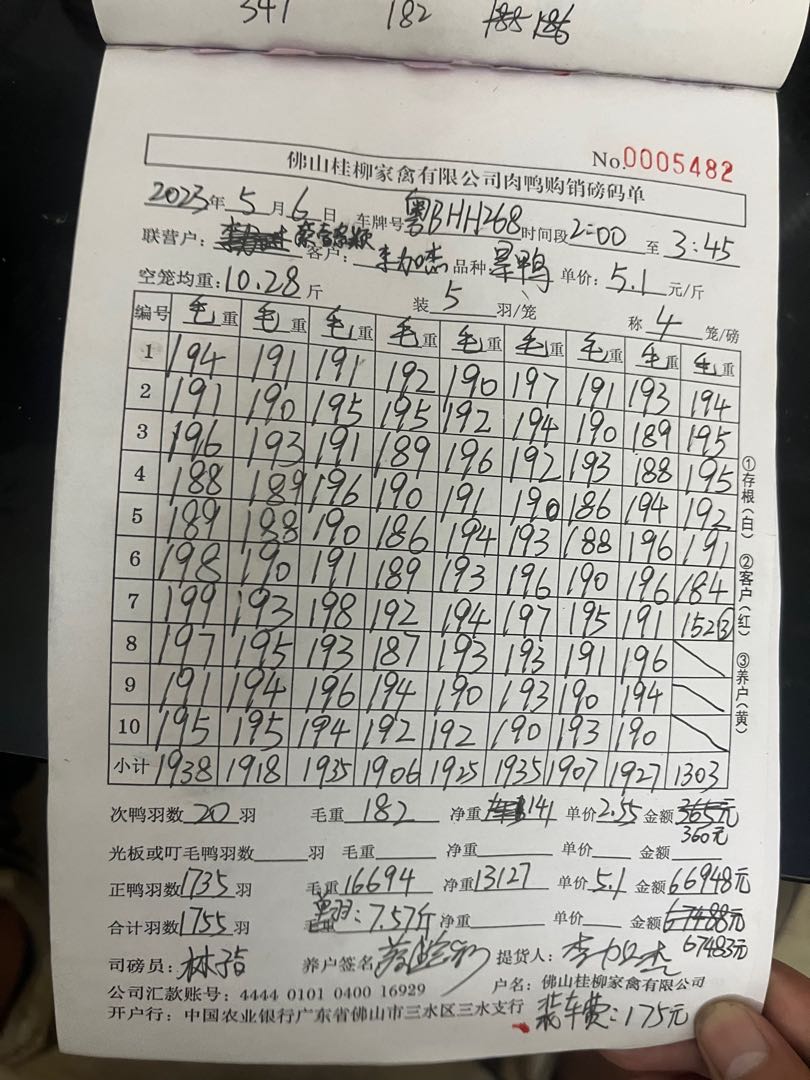 341 182 186
No.0005482
佛山桂柳家禽有限公司肉鸭购销磅码单
2023年5月6日 车牌号粤BHH268时间段2:00至3:45
联营户: 客户: 李加杰 品种: 单价: 5.1 元/斤
空笼均重: 10.28 斤 装 5 羽/笼 称 4 笼/磅
编号 毛重 毛重 毛重 毛重 毛重 毛重 毛重 毛重 毛重
1 194 191 191 192 190 197 191 193 194
2 191 190 195 195 192 194 190 189 195
3 196 193 191 189 196 192 193 188 195
4 188 189 196 190 191 190 186 194 192
5 189 188 190 186 194 193 188 196 191
6 198 190 191 189 193 196 190 196 184
7 199 193 198 192 194 197 195 191 152③
8 197 195 193 187 193 193 191 196
9 191 194 196 194 190 193 190 194
10 195 195 194 192 192 190 193 190
小计 1938 1918 1935 1906 1925 1935 1907 1927 1303
①存根(白) ②客户(红) ③养户(黄)
次鸭羽数 20 羽 毛重 182 净重 141 单价 2.55 金额 365元
360元
光板或叮毛鸭羽数 羽 毛重 净重 单价 金额
正鸭羽数 1735 羽 毛重 16694 净重 13127 单价 5.1 金额 66948元
合计羽数 1755 羽 毛重 : 7.57斤 净重 单价 金额 67488元
67483元
司磅员: 养户签名 提货人: 李加杰
公司汇款账号: 4444 0101 0400 16929 户名: 佛山桂柳家禽有限公司
开户行: 中国农业银行广东省佛山市三水区三水支行 装车费: 175元